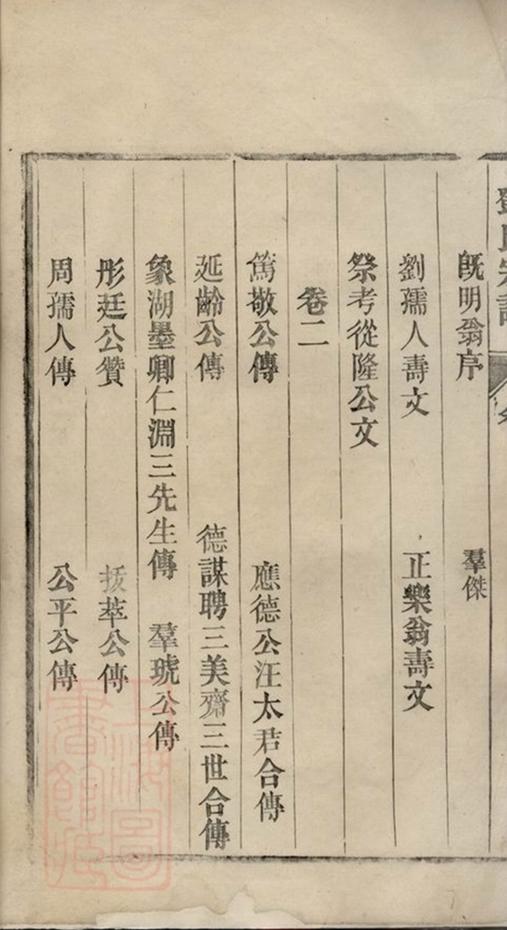 鄧氏宗譜
既明翁序 羣傑
劉孺人壽文 正樂翁壽文
祭考從隆公文
卷二
篤敬公傳 應德公汪太君合傳
延齡公傳 德謀聘三美齋三世合傳
象湖墨卿仁淵三先生傳 羣琥公傳
彤廷公贊 拔萃公傳
周孺人傳 公平公傳